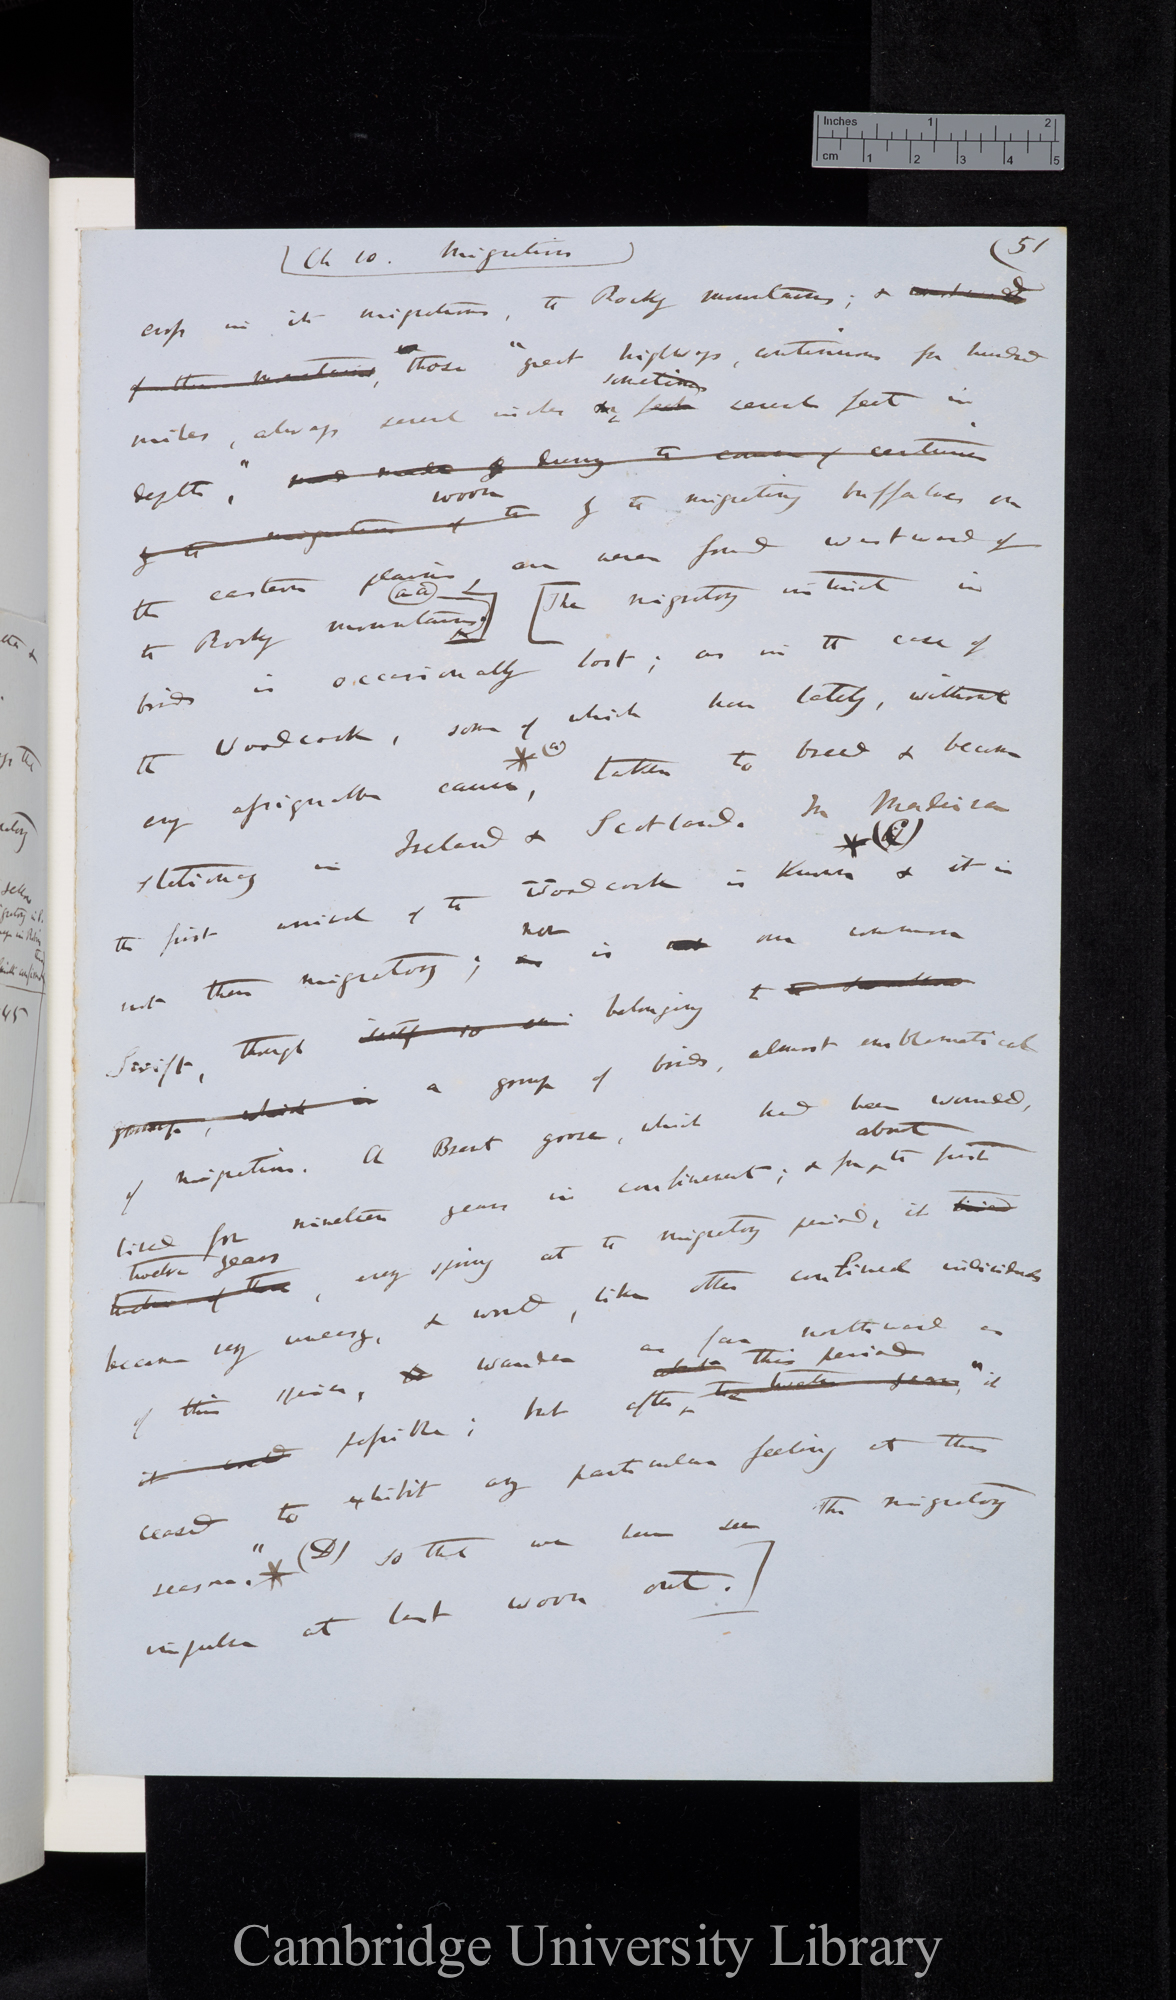 Inches 1 2
cm 1 2 3 4 5
Ch 10. Migration (51
cross in its migrations, the Rocky mountains; &
of these mountains, those "great highways, continuous for hundred
sometimes
miles, always several inches & feet several feet in
depth," and made by during the course of centuries
worn
by the migration of the by the migrating buffaloes on
the eastern plains are never found westward of
(aa)
the Rocky mountains. [The migratory instinct in
birds is occasionally lost; as in the case of
the Woodcock, some of which have lately, without
(a)
any assignable cause*, taken to breed & become
stationary in Ireland & Scotland. In Madeira
*(C)
the first arrival of the Woodcock is known & it is
nor
not there migratory; is our common
Swift, though belonging to
group, which is a group of birds, almost emblematical
of migration. A Brent goose, which had been wounded,
about
lived for nineteen years in confinement; & for the first
twelve years
, every spring at the migratory period, it
became very uneasy, & would, like other confined individuals
of this species, wander as far northward as
this period
it could possible; but after the twelve years, "it
ceased to exhibit any particular feeling at this
season."*(D) So that we have seen the migratory
impulse at last worn out.]
45
Cambridge University Library